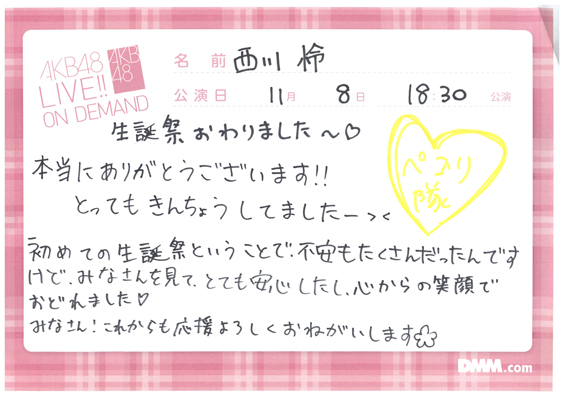 AKB48
LIVE!!
ON DEMAND
AKB
48
名前 西川怜
公演日 11月 8日 18:30 公演
生誕祭おわりました〜♡
本当にありがとうございます!!
とってもきんちょうしてましたーっ
ペコリ
隊
初めての生誕祭ということで、不安もたくさんだったんです
けど、みなさんを見て、とても安心したし、心からの笑顔で
おどれました♡
みなさん!これからも応援よろしくおねがいします
DMM.com